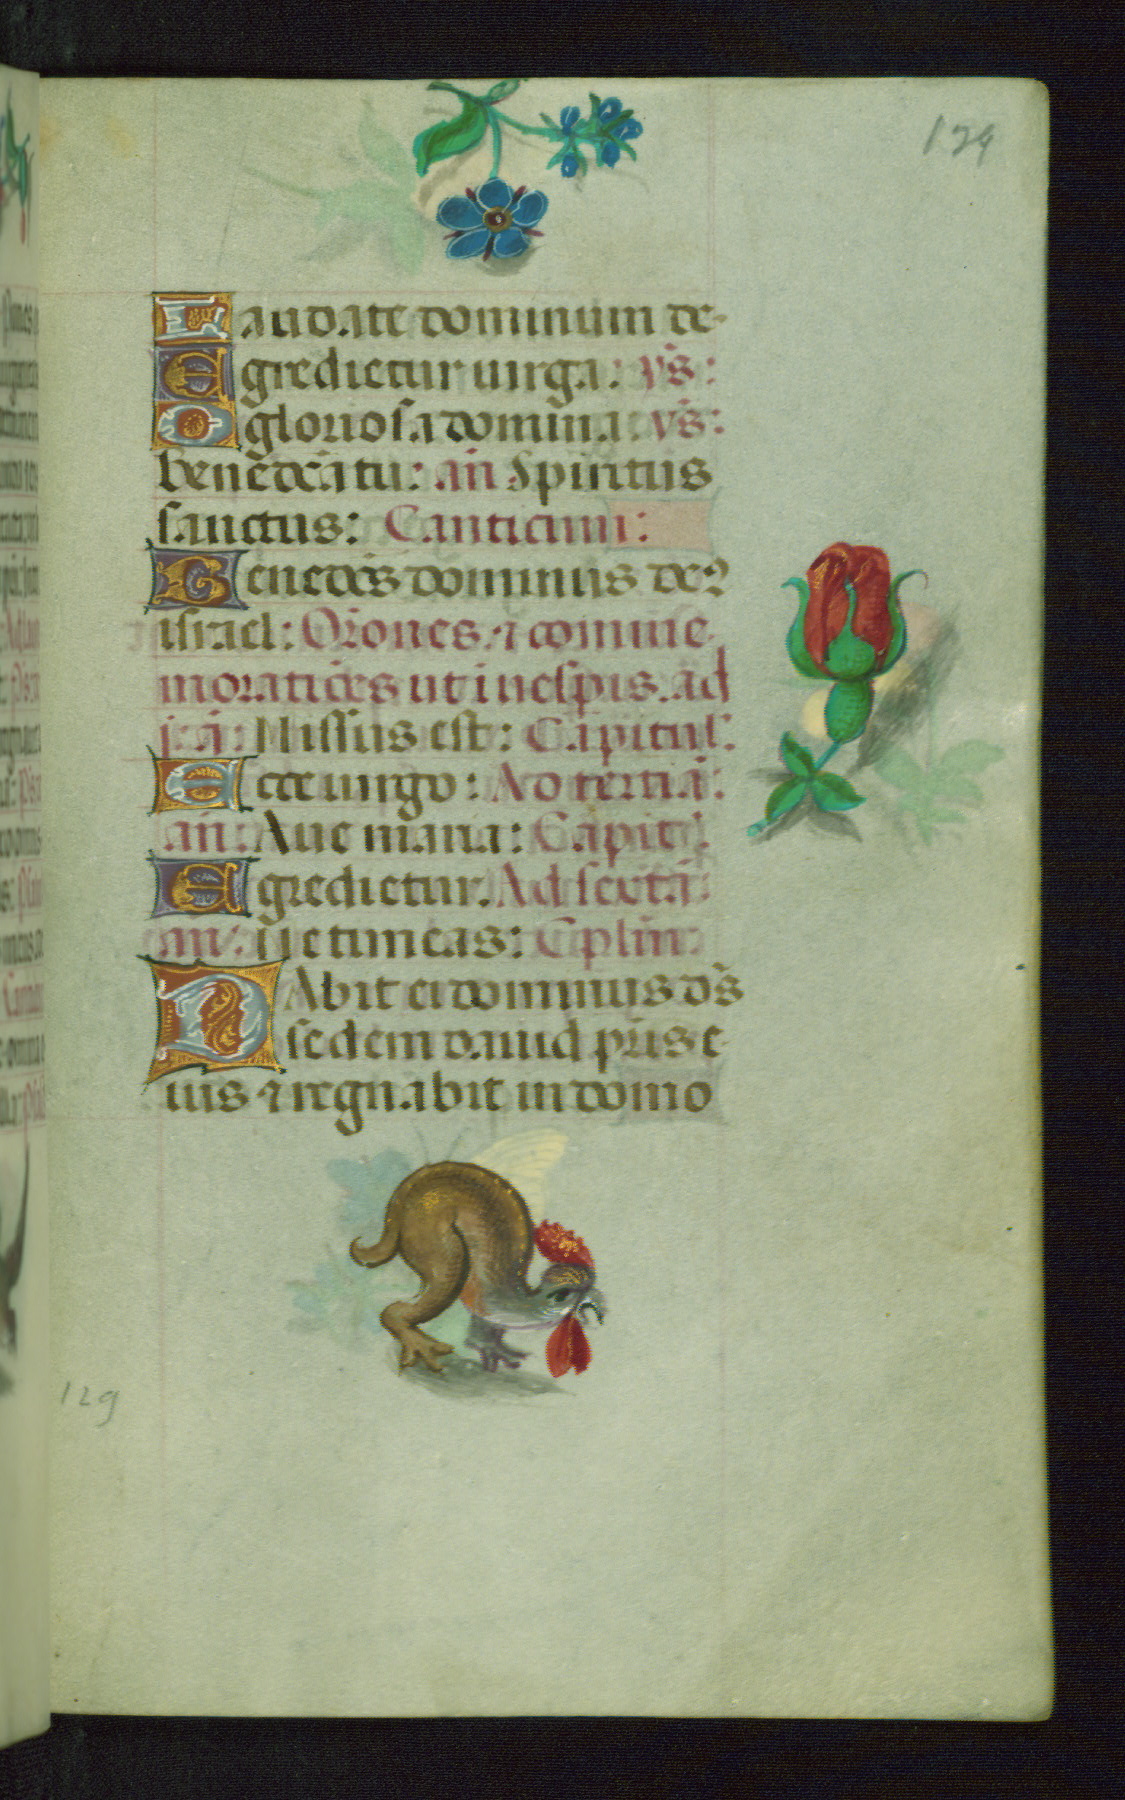 129
Laudate dominum de
Egredietur uirga: v̄s:
O gloriosa domina: v̄s:
benedc̄a tu: an̄ Spiritus
sanctus: Canticum:
Benedcs̄ dominus de9
israel: Or̄ones ⁊ comme
moratiōes ut i uesp̄is. ad
Missus est: Capitul̄:
Ecce uirgo: Ad tertiā:
an̄: Aue maria: Capit̄.
Egredietur. Ad sextā:
an̄: Ne timeas: Cplm̄:
DAbit ei dominus ds̄
sedem dauid pr̄is e
ius ⁊ regnabit in domo
129